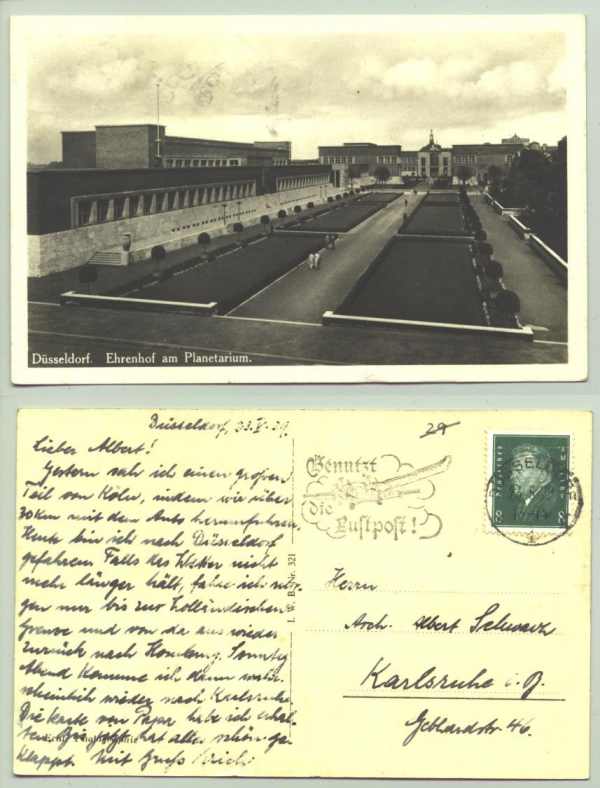 Düsseldorf. Ehrenhof am Planetarium.
Düsseldorf, 23.V.29
Lieber Albert!
Gestern sah ich einen großen
Teil von Köln, indem wir über
30 km mit dem Auto herumfuhren.
Heute bin ich nach Düsseldorf
gefahren. Falls das Wetter nicht
mehr länger hält, fahre ich mor-
gen nur bis zur holländischen
Grenze und von da aus wieder
zurück nach Homburg. Sonntag
Abend komme ich dann wahr-
scheinlich wieder nach Karlsruhe.
Die Karte von Papa habe ich erhal-
ten. Bis jetzt hat alles schön ge-
klappt. Mit Gruß
I. W. B. Nr. 321
Benutzt
die
Luftpost!
Deutsches
8 8
Herrn
Arch. Albert Schwarz
Karlsruhe i. B.
Gebhardstr. 46.